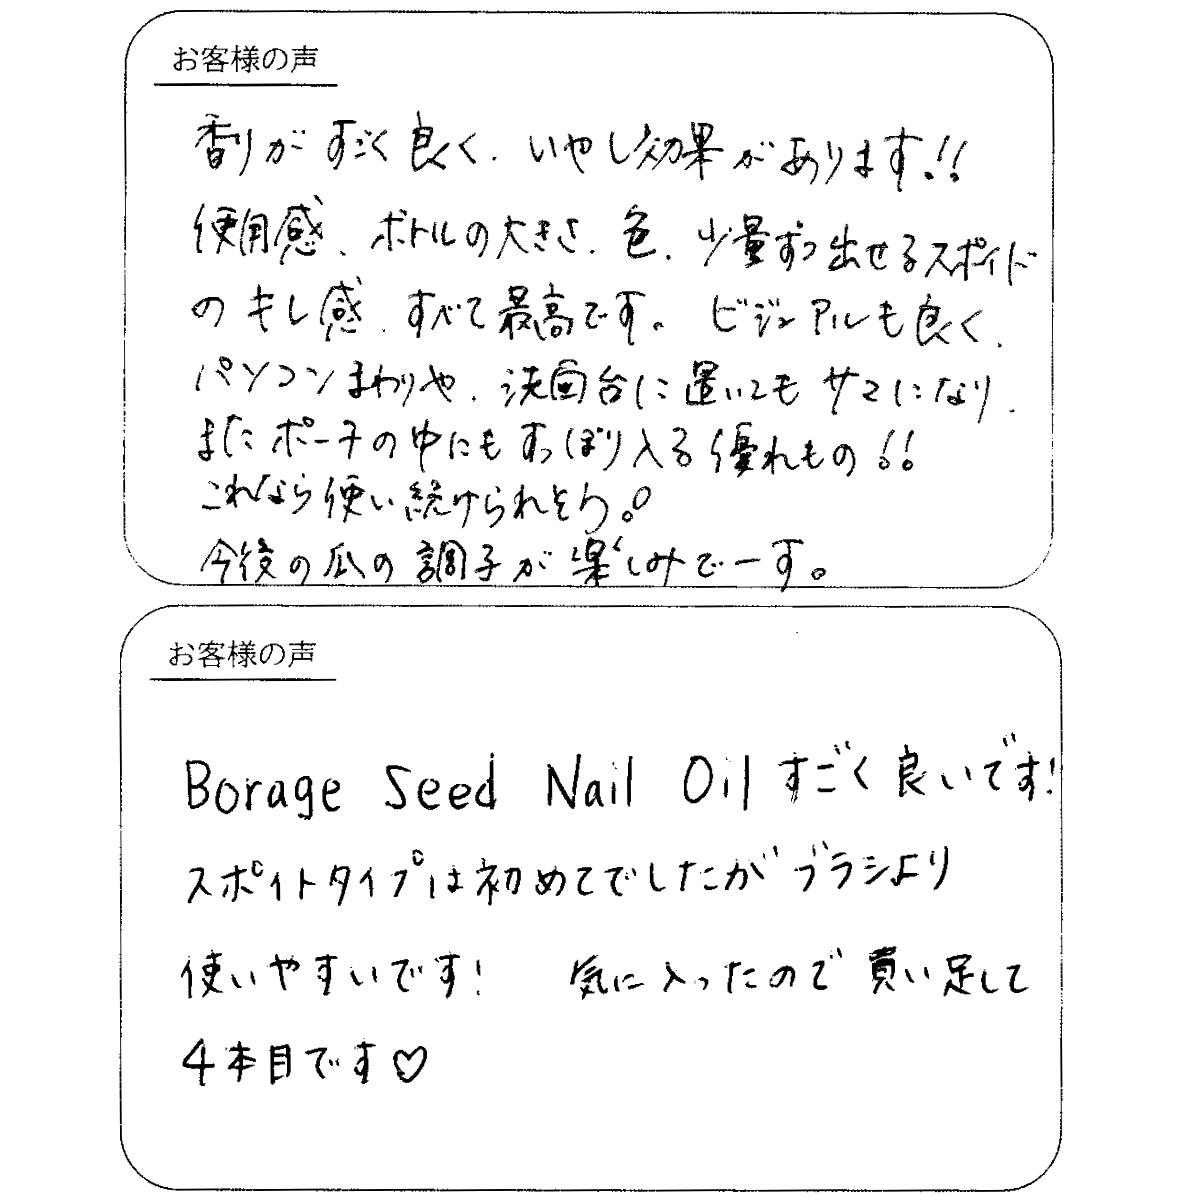 お客様の声
香りがすごく良く、いやし効果があります!!
使用感、ボトルの大きさ、色、少量ずつ出せるスポイド
のキレ感、すべて最高です。ビジュアルも良く、
パソコンまわりや、洗面台に置いてもサマになり、
またポーチの中にもすっぽり入る優れもの!!
これなら使い続けられそう。
今後の爪の調子が楽しみでーす。
お客様の声
Borage Seed Nail Oil すごく良いです!
スポイトタイプは初めてでしたがブラシより
使いやすいです! 気に入ったので買い足して
4本目です♡